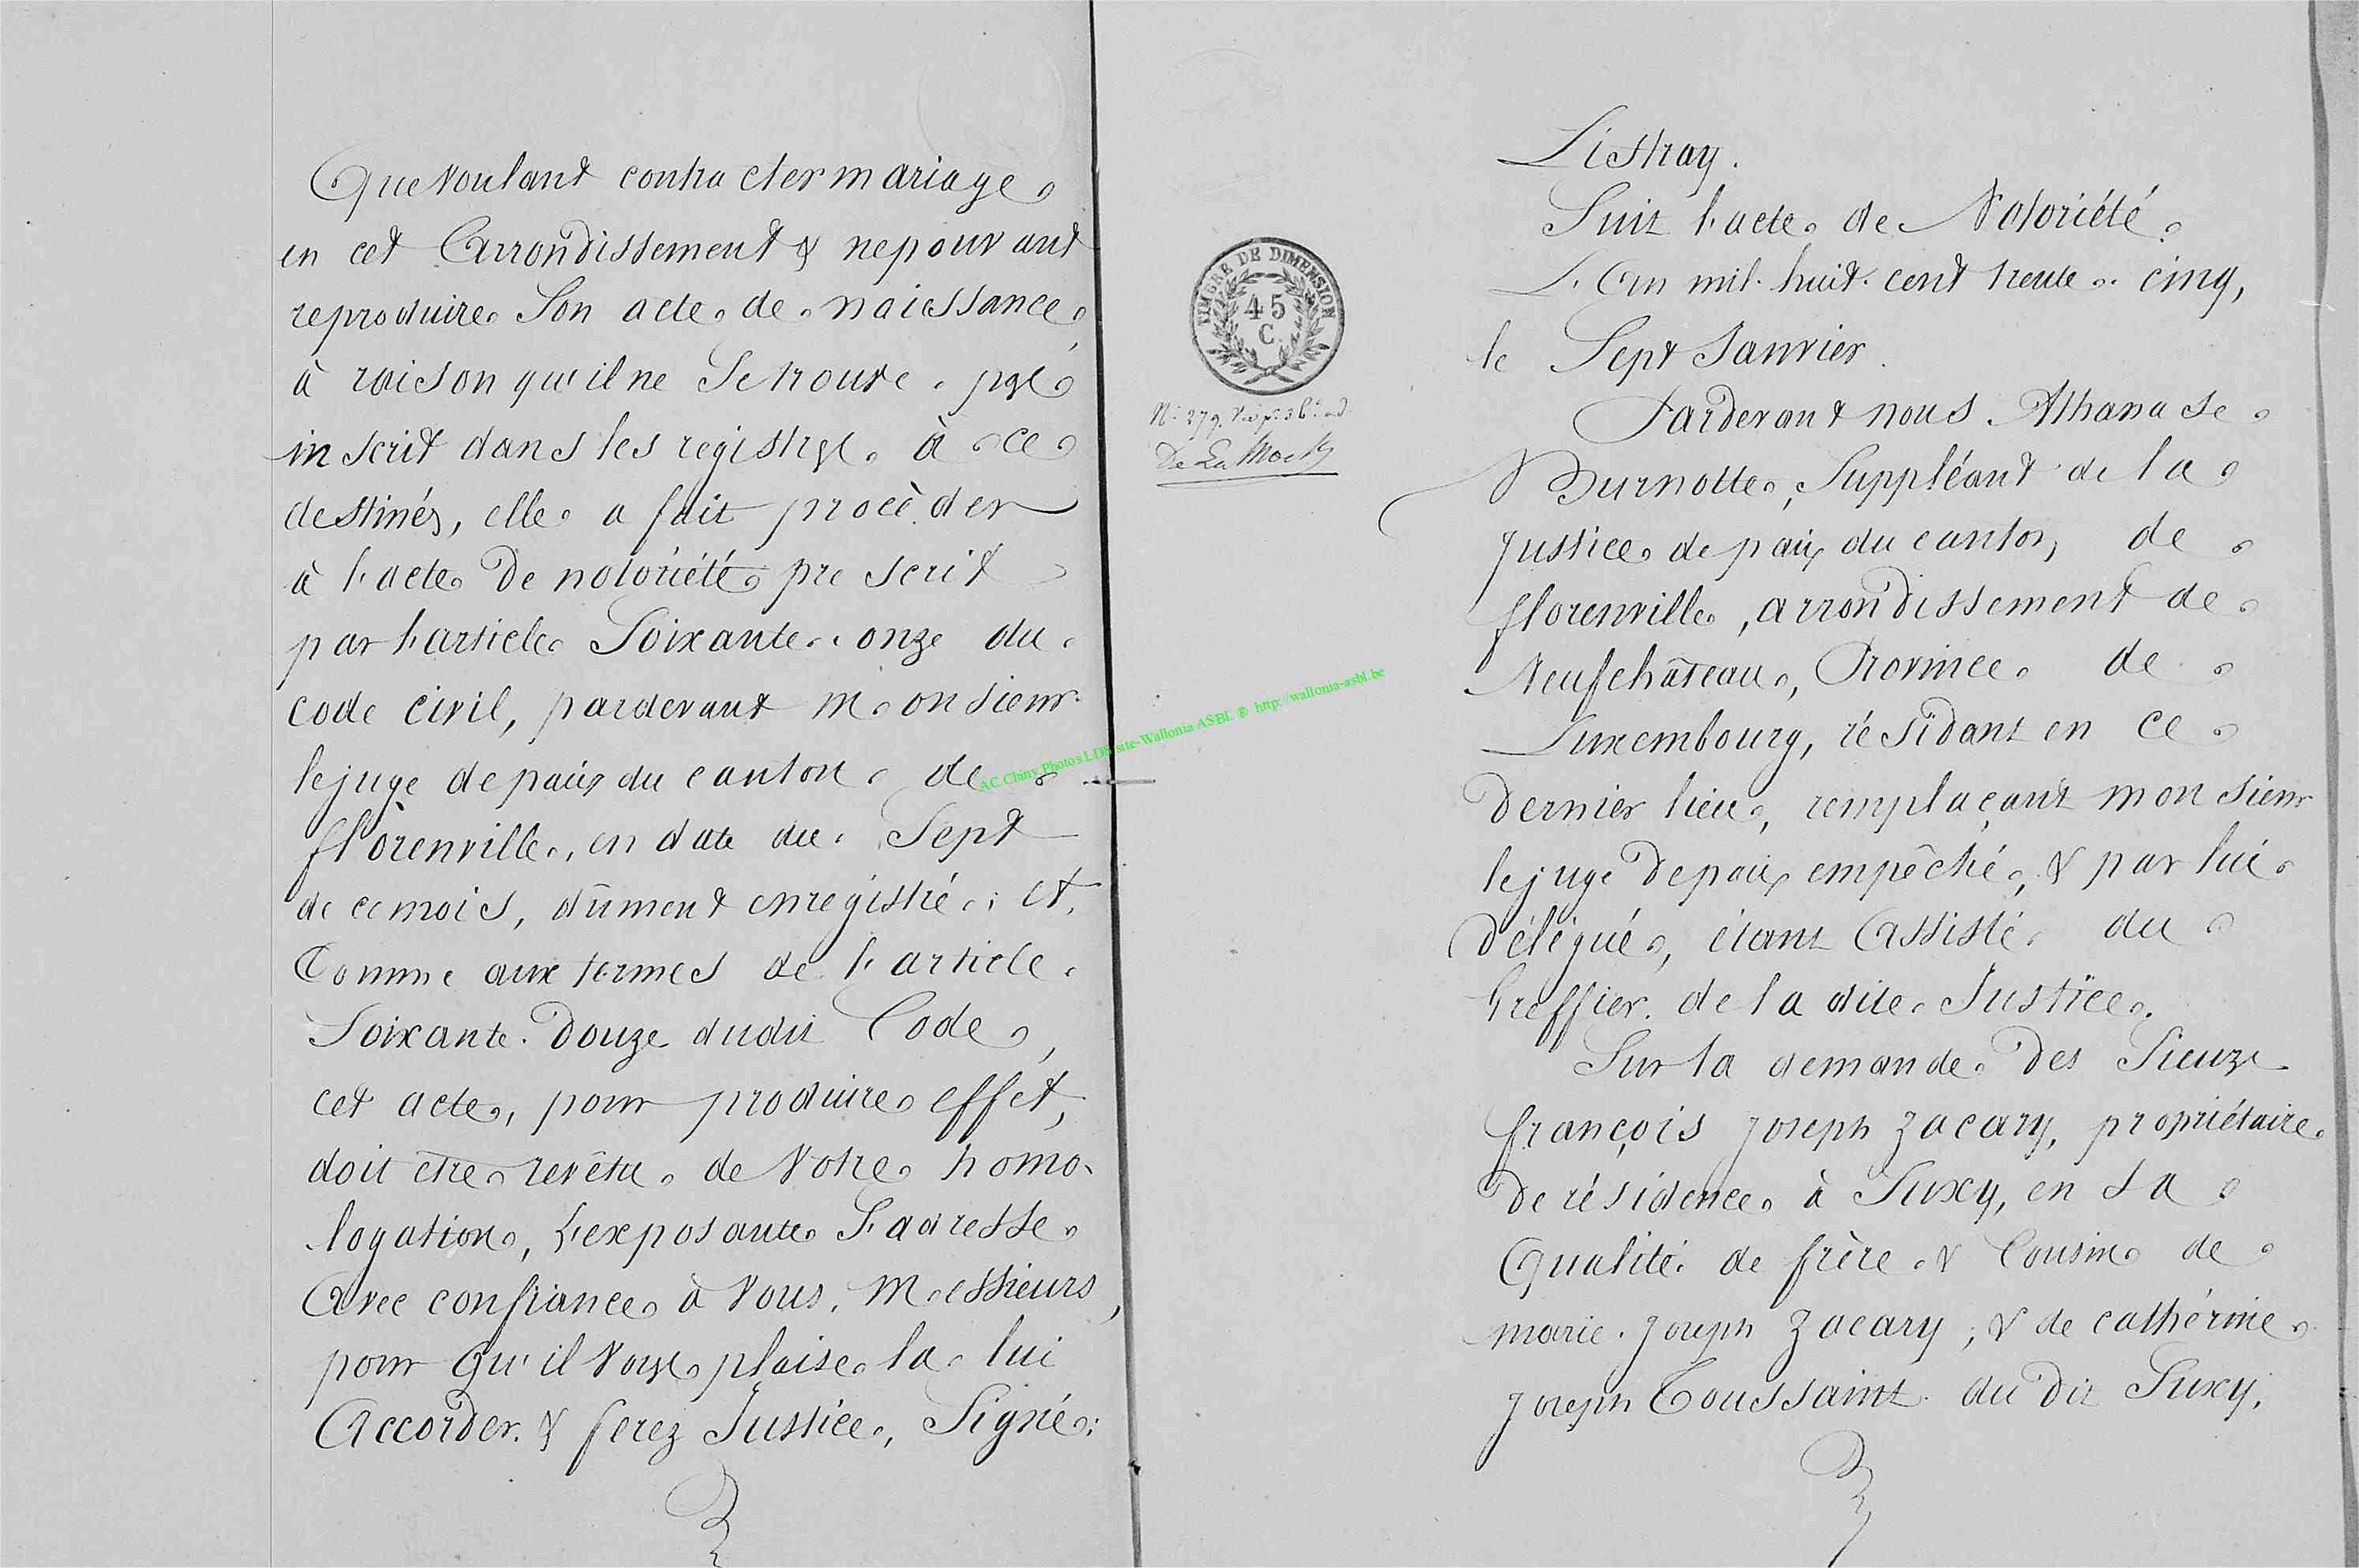 Que voulant contracter mariage
en cet Arrondissement & ne pouvant
reproduire Son acte de naissance,
à raison qu'il ne Se trouve pas
inscrit dans les registres à ce
destinés, elle a fait procèder
à l'acte De notoriété prescrit
par l'article Soixante-onze du
code civil, pardevant monsieur
le juge de paix du canton de
florenville, en date du Sept
de ce mois, dûment enregistré; et
Comme aux termes de l'article
Soixante-Douze dudit Code,
cet acte, pour produire effet,
doit être revêtu de Votre homo-
logation, L'exposante S'adresse
Avec confiance à Vous, Messieurs,
pour Qu'il Vous plaise la lui
Accorder. & ferez Justice, Signé:
TIMBRE DE DIMENSION
45
C.
N° 279.
AC Chiny Photos LDB site-Wallonia ASBL ® http://wallonia-asbl.be
Listray.
Suit l'acte de Notoriété.
L'An mil-huit-cent trente-cinq,
le Sept Janvier.
Pardevant nous Athanase
Burnotte, Suppléant de la
Justice de paix du canton de
florenville, arrondissement de
Neufchâteau, Province de
Luxembourg, résidant en ce
Dernier lieu, remplaçant monsieur
le juge De paix empêché, & par lui
Délégué, étant Assisté du
Greffier de la dite Justice.
Sur la demande Des Sieurs
françois Joseph Zacary, propriétaire
De résidence à Suxy, en sa
Qualité de frère & Cousin de
marie-Joseph Zacary, & de cathérine
Joseph Toussaint du Dit Suxy,